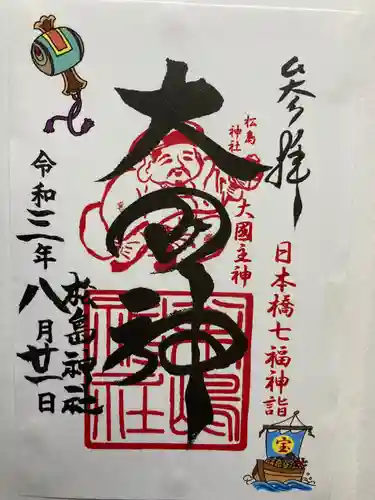 參拜
日本橋七福神詣
松島
神社
大國主神
大国神
松島神社
令和三年八月廿一日
松島神社
宝